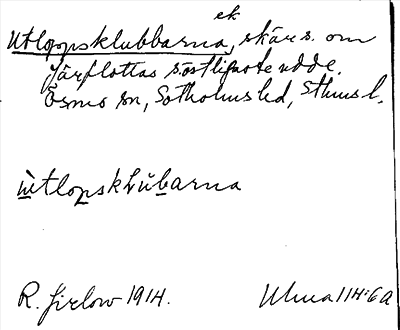 ek
Utloppsklubbarna, skär s. om
Järflottas sostligaste udde.
Ösmo sn, Sotholms hd, Sthms l.
ùtlopsklùbarna
R. Jirlow 1914.
Ulma 114:6a